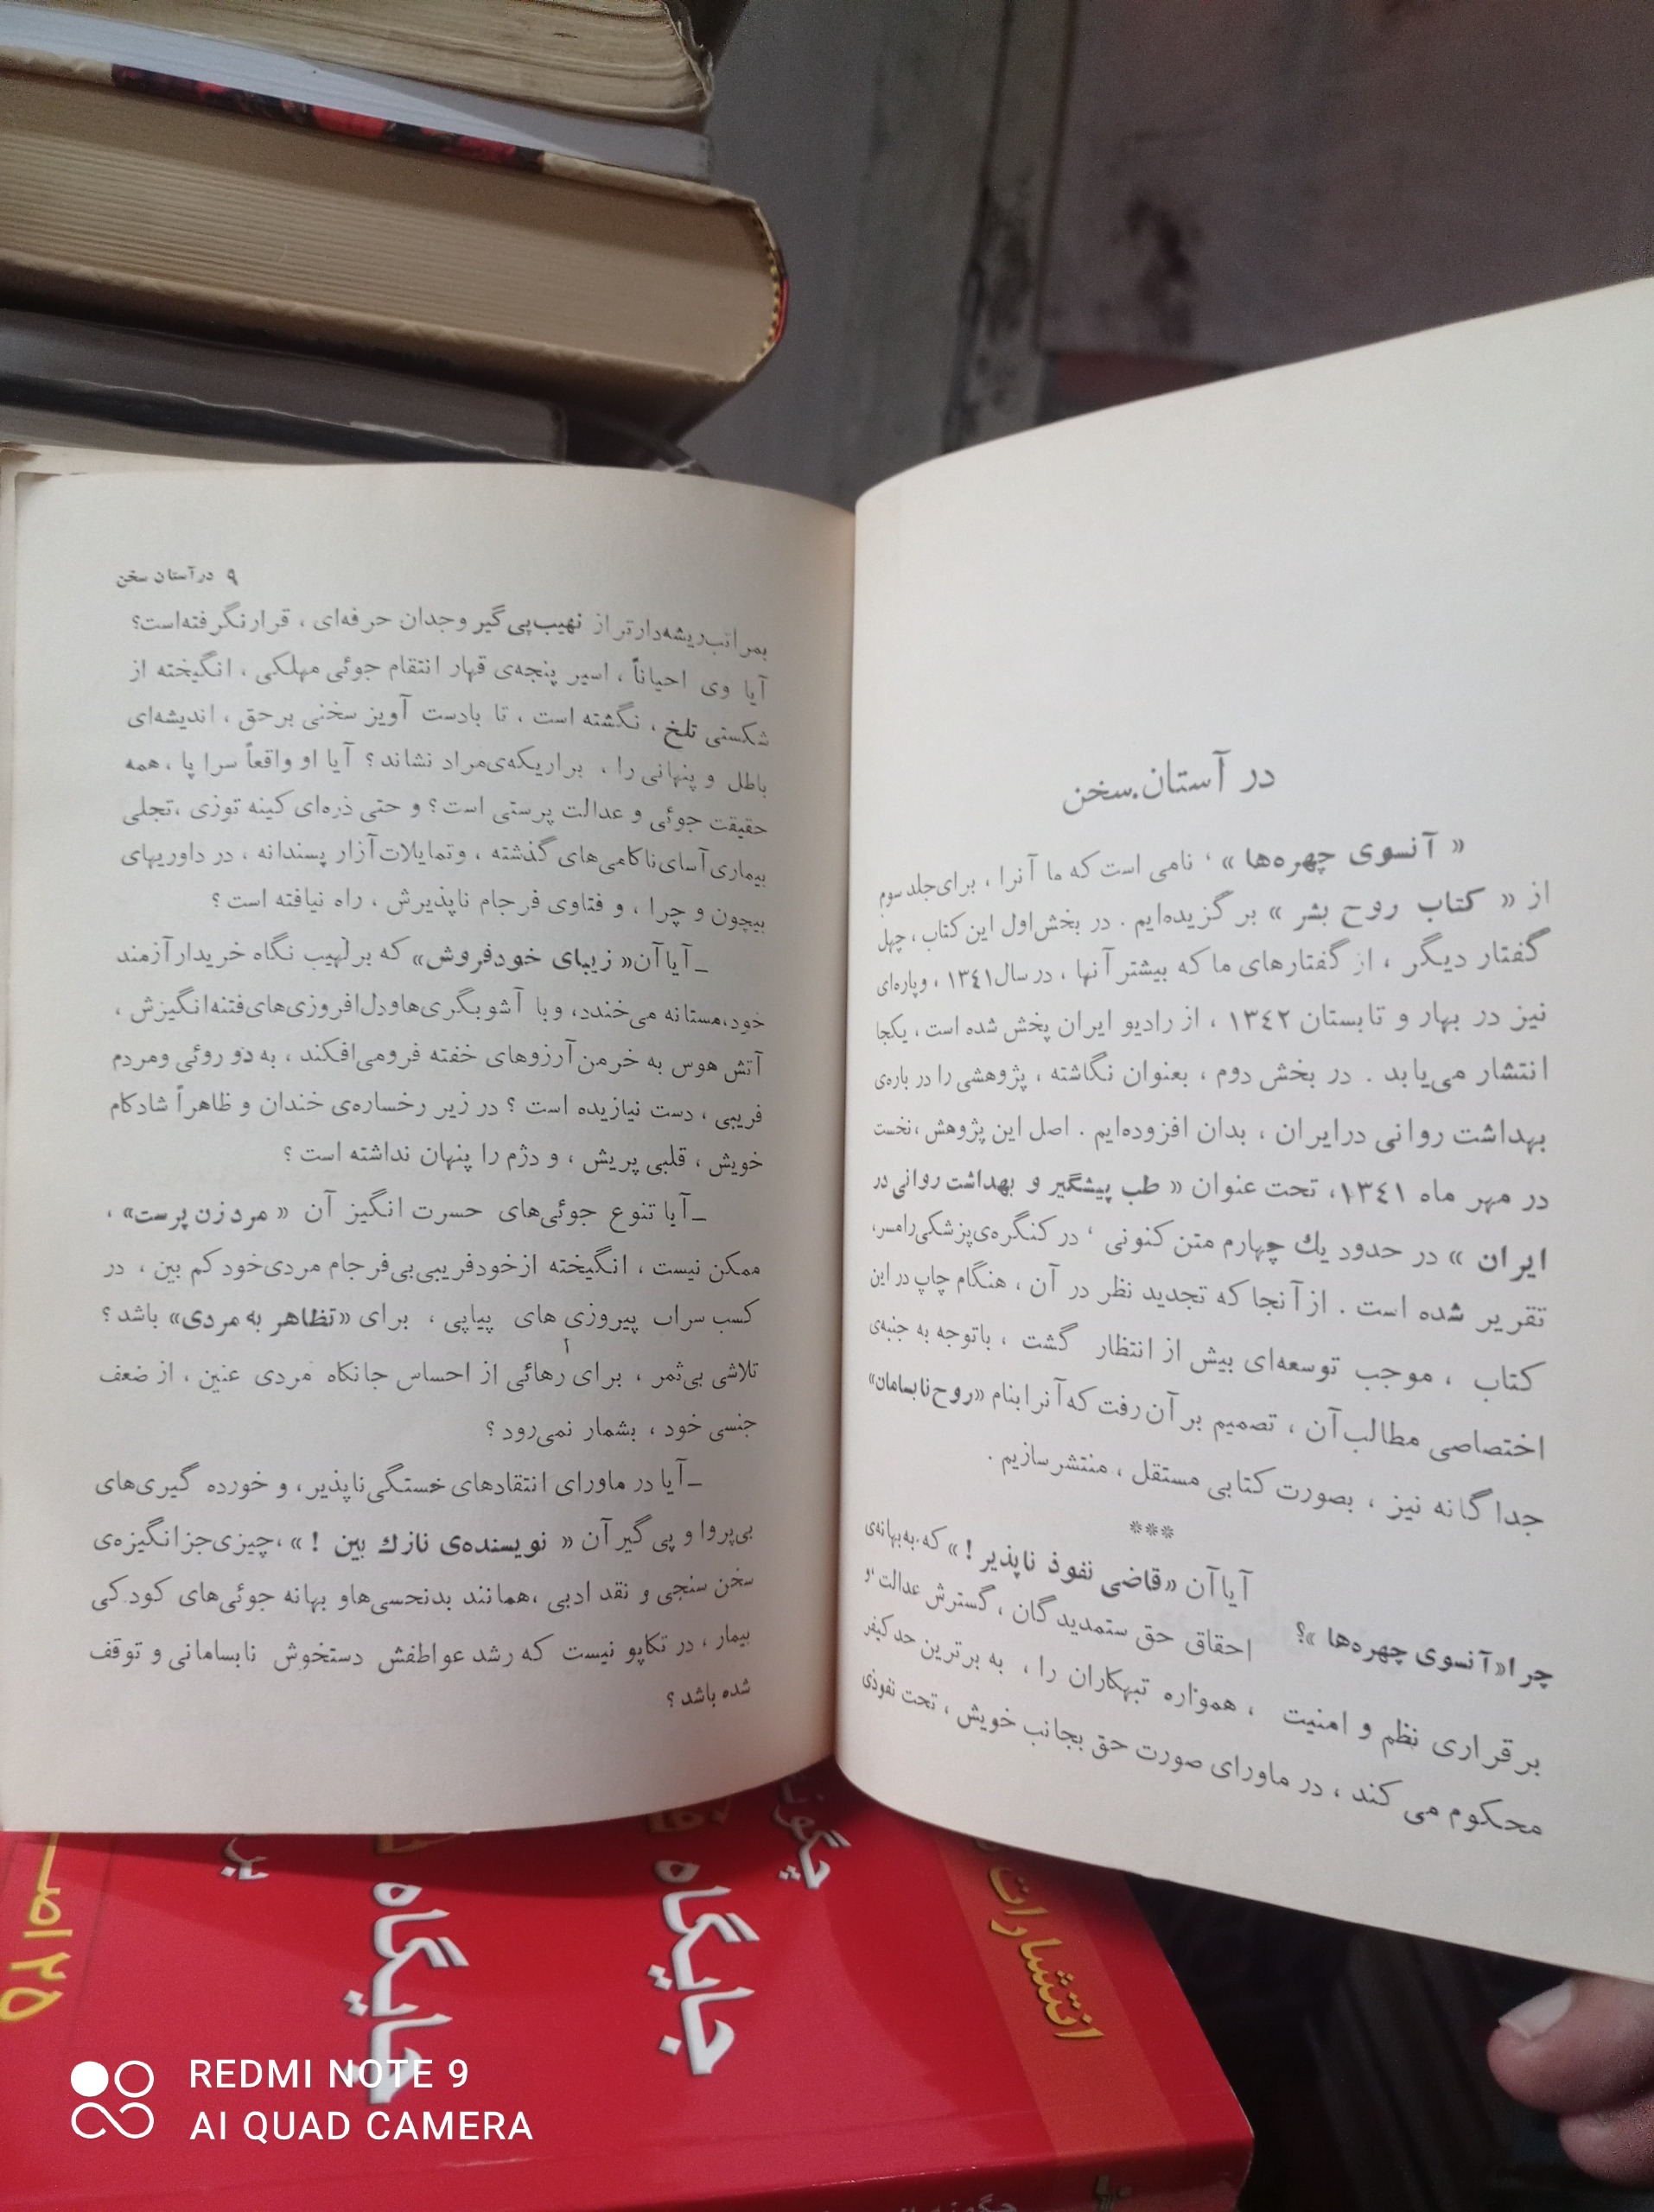 در آستان سخن
« آنسوی چهره‌ها » ، نامی است که ما آنرا ، برای جلد سوم
از « کتاب روح بشر » برگزیده‌ایم . در بخش اول این کتاب ، چهل
گفتار دیگر ، از گفتارهای ما که بیشتر آنها ، در سال ۱۳٤۱ ، و پاره‌ای
نیز در بهار و تابستان ۱۳٤۲ ، از رادیو ایران پخش شده است ، یکجا
انتشار می‌یابد . در بخش دوم ، بعنوان نگاشته ، پژوهشی را در باره‌ی
بهداشت روانی درایران ، بدان افزوده‌ایم . اصل این پژوهش ، نخست
در مهر ماه ۱۳٤۱، تحت عنوان « طب پیشگیر و بهداشت روانی در
ایران » در حدود یك چهارم متن کنونی ، در کنگره‌ی پزشکی رامسر،
تقریر شده است . از آنجا که تجدید نظر در آن ، هنگام چاپ در این
کتاب ، موجب توسعه‌ای بیش از انتظار گشت ، باتوجه به جنبه‌ی
اختصاصی مطالب آن ، تصمیم بر آن رفت که آنرا بنام «روح نابسامان»
جداگانه نیز ، بصورت کتابی مستقل ، منتشر سازیم .
***
آیا آن «قاضی نفوذ ناپذیر !» که به بهانه‌ی
چرا «آنسوی چهره‌ها »؟ احقاق حق ستمدیدگان ، گسترش عدالت ، و
برقراری نظم و امنیت ، همواره تبهکاران را ، به برترین حد کیفر
محکوم می کند ، در ماورای صورت حق بجانب خویش ، تحت نفوذی
۹ در آستان سخن
بمراتب ریشه‌دارتر از نهیب پی‌گیر وجدان حرفه‌ای ، قرار نگرفته‌است؟
آیا وی احیاناً ، اسیر پنجه‌ی قهار انتقام جوئی مهلکی ، انگیخته از
شکستی تلخ ، نگشته است ، تا بادست آویز سخنی برحق ، اندیشه‌ای
باطل و پنهانی را ، براریکه‌ی مراد نشاند ؟ آیا او واقعاً سرا پا ، همه
حقیقت جوئی و عدالت پرستی است ؟ و حتی ذره‌ای کینه توزی ، تجلی
بیماری آسای ناکامی‌های گذشته ، وتمایلات آزار پسندانه ، در داوریهای
بیچون و چرا ، و فتاوی فرجام ناپذیرش ، راه نیافته است ؟
ـ آیا آن « زیبای خودفروش» که برلهیب نگاه خریدار آزمند
خود، مستانه می‌خندد، و با آشوبگری‌ها و دل‌افروزی‌های فتنه‌انگیزش ،
آتش هوس به خرمن آرزوهای خفته فرومی‌افکند ، به دو روئی ومردم
فریبی ، دست نیازیده است ؟ در زیر رخساره‌ی خندان و ظاهراً شادکام
خویش ، قلبی پریش ، و دژم را پنهان نداشته است ؟
ـ آیا تنوع جوئی‌های حسرت انگیز آن « مرد زن پرست» ،
ممکن نیست ، انگیخته ازخودفریبی بی‌فرجام مردی خود کم بین ، در
کسب سراب پیروزی های پیاپی ، برای «تظاهر به مردی» باشد ؟
تلاشی بی‌ثمر ، برای رهائی از احساس جانکاه مردی عنین ، از ضعف
جنسی خود ، بشمار نمی‌رود ؟
ـ آیا در ماورای انتقادهای خستگی ناپذیر، و خورده گیری‌های
بی‌پروا و پی گیر آن « نویسنده‌ی نازك بین ! » ، چیزی جز انگیزه‌ی
سخن سنجی و نقد ادبی ، همانند بدنحسی‌ها و بهانه جوئی‌های کودکی
بیمار ، در تکاپو نیست که رشد عواطفش دستخوش نابسامانی و توقف
شده باشد ؟
انتشارات
جایگاه
جایگاه
۲۵
REDMI NOTE 9
AI QUAD CAMERA